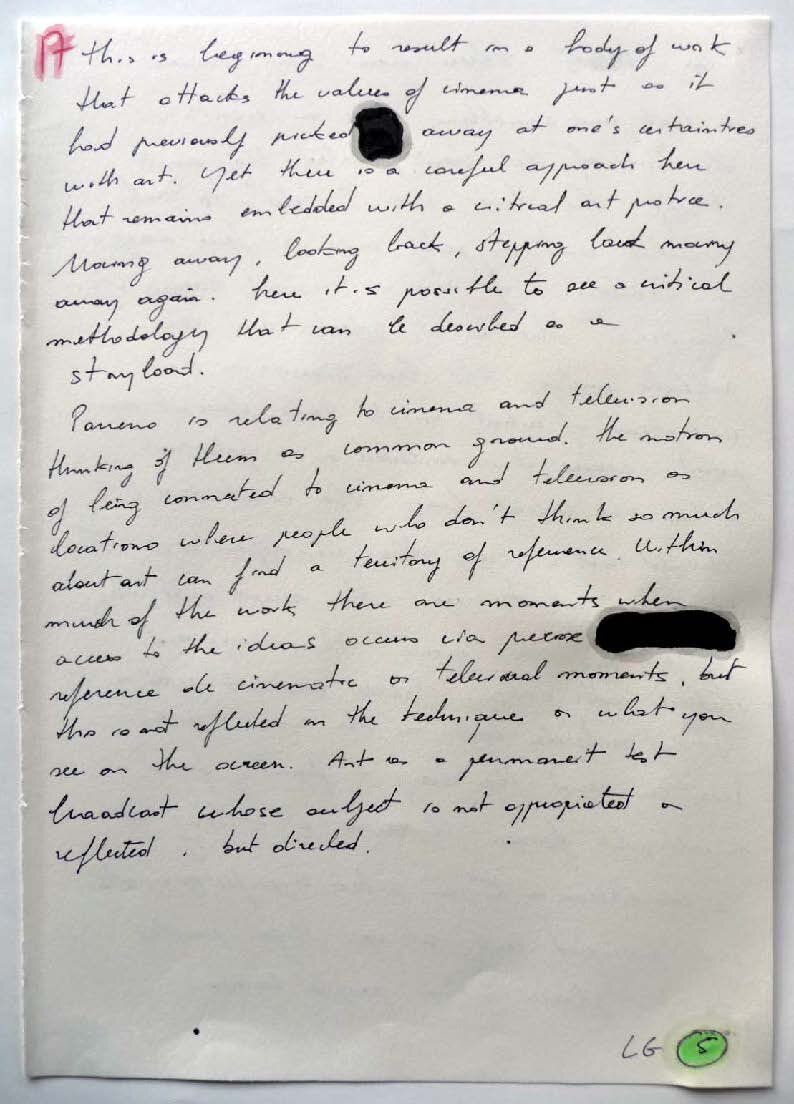 17 this is beginning to result in a body of work
that attacks the values of cinema just as it
had previously picked away at one's certainties
with art. Yet there is a careful approach here
that remains embedded with a critical art pratice.
Moving away, looking back, stepping back moving
away again. here it is possible to see a critical
methodology that can be described as a
stayload.
Parreno is relating to cinema and television
thinking of them as common ground. the notion
of being connected to cinema and television as
locations where people who don't think so much
about art can find a territory of reference. Within
much of the work there are moments when
access to the ideas occurs via
reference de cinematic or televisual moments, but
this is not reflected in the techniques or what you
see on the screen. Art as a permanent test
broadcast whose subject is not appropriated or
reflected, but directed.
LG 5